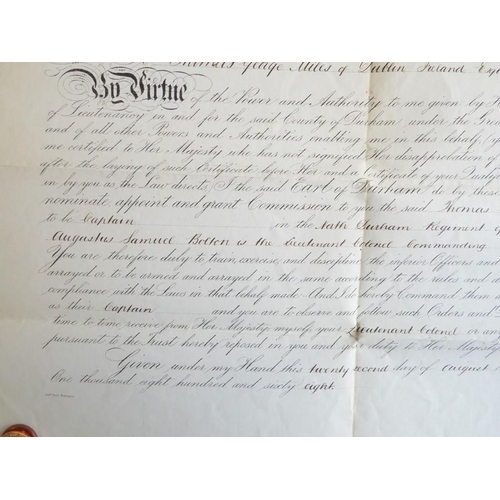 Thomas George Miles of Dublin Ireland Esq
By Virtue of the Power and Authority to me given by
of Lieutenancy in and for the said County of Durham under the Great
and of all other Powers and Authorities enabling me in this behalf
me certified to Her Majesty who has not signified Her disapprobation
after the laying of such Certificate before Her and a Certificate of your
in by you as the Law directs, I the said Earl of Durham do by these
nominate appoint and grant Commission to you the said Thomas
to be Captain in the North Durham Regiment of
Augustus Samuel Bolton is the Lieutenant Colonel Commanding
You are therefore duly to train, exercise, and discipline the inferior Officers and
arrayed or to be armed and arrayed in the same according to the rules and
compliance with the Laws in that behalf made And I do hereby Command them
as their Captain and you are to observe and follow such Orders and
time to time receive from Her Majesty myself your Lieutenant Colonel or
pursuant to the trust hereby reposed in you and your duty to Her Majesty
Given under my Hand this twenty second day of August
One thousand eight hundred and sixty eight.